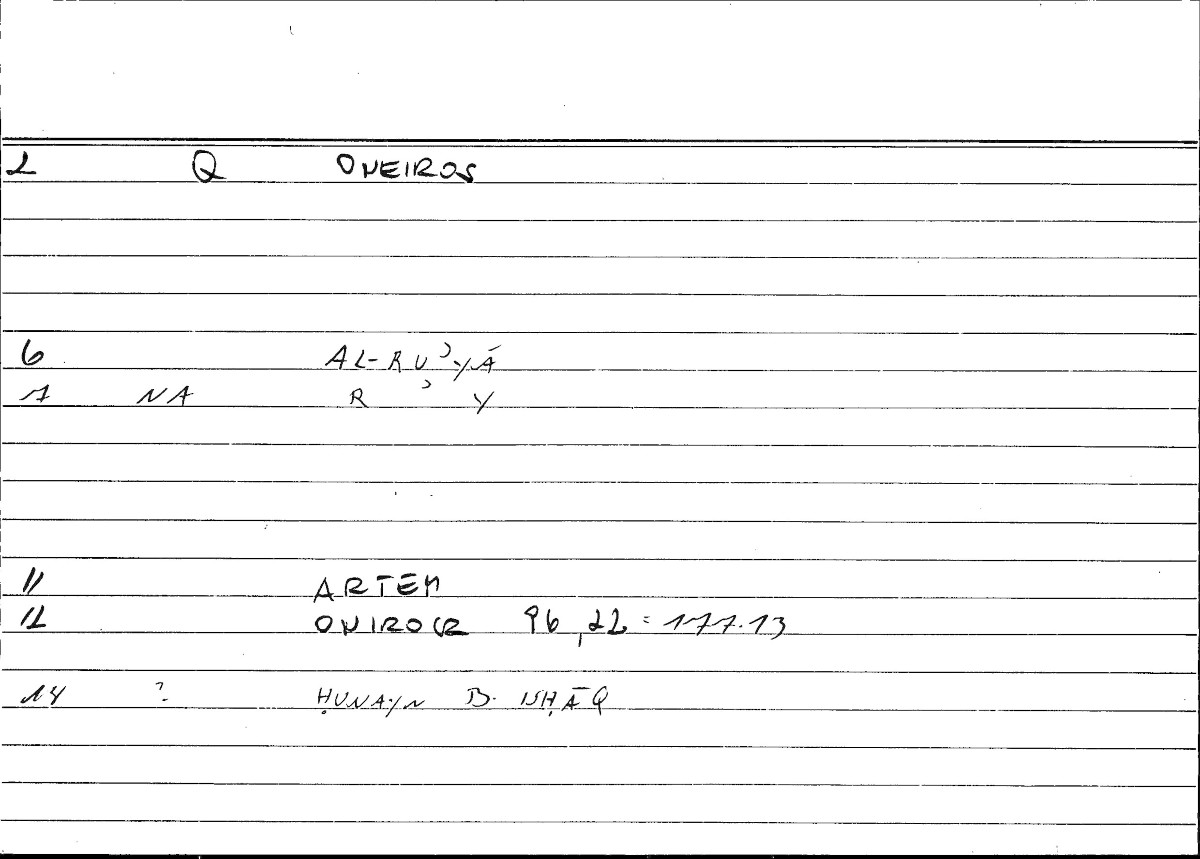 2 Q ONEIROS
6 AL-RUʾYĀ
7 NA R ʾ Y
11 ARTEM
12 ONIROCR 96,22 = 177.13
14 ? ḤUNAYN B. ISḤĀQ